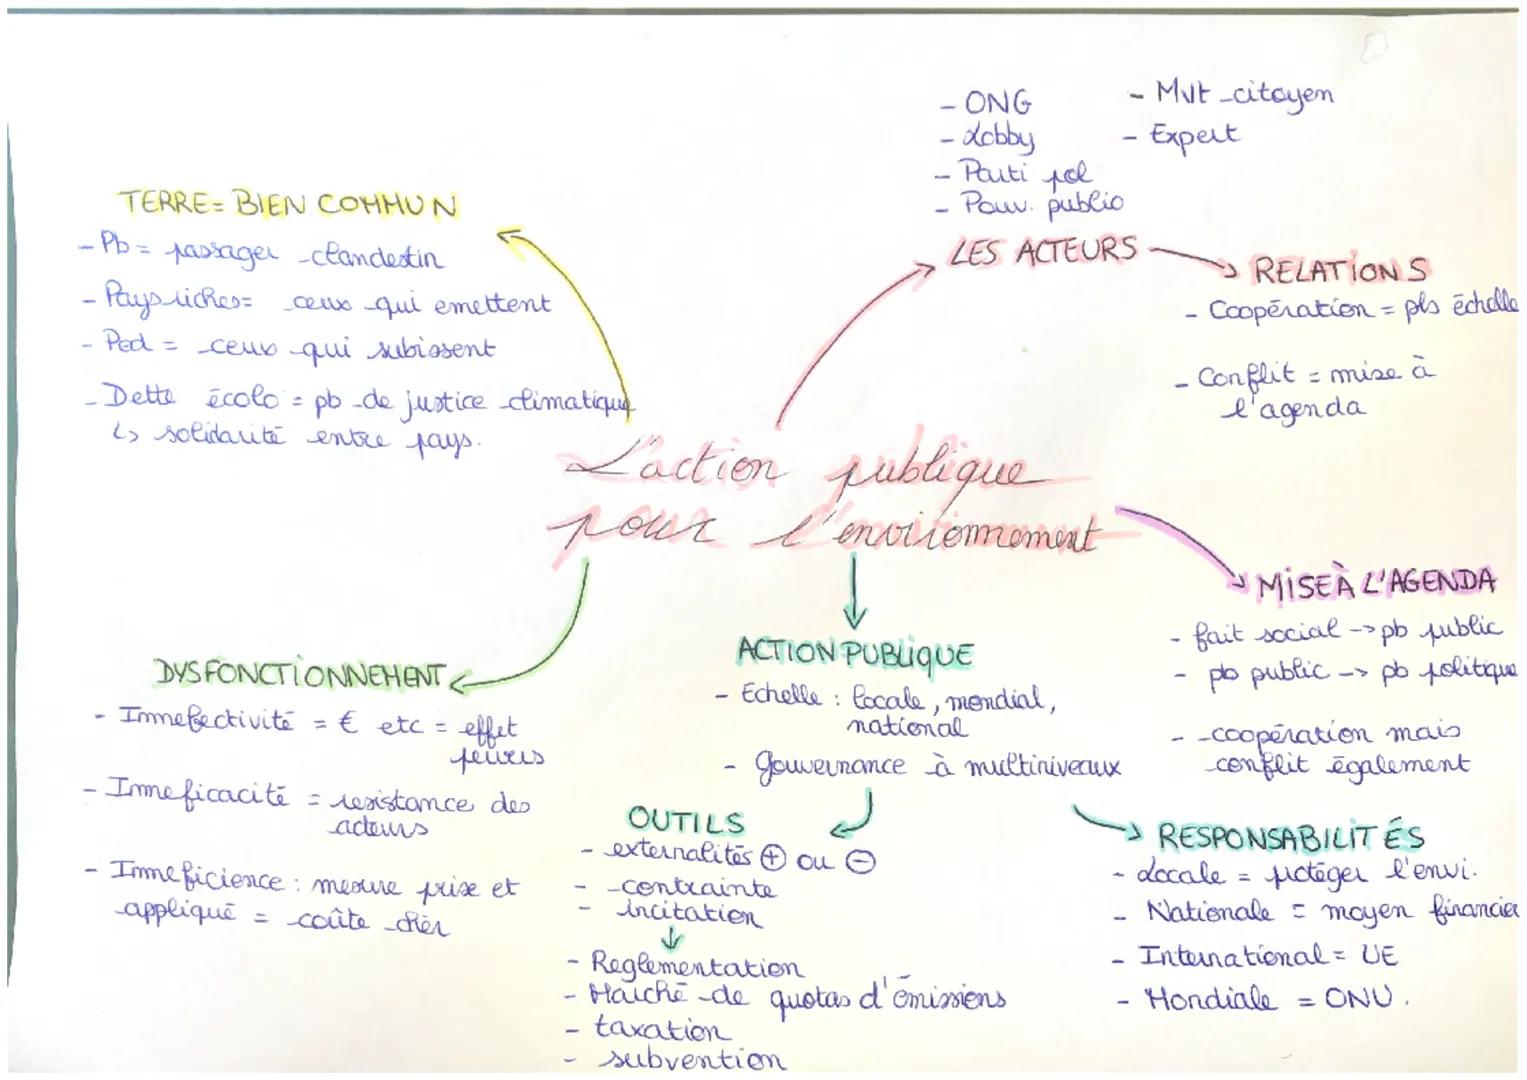 L'action publique
pour l'environnement
TERRE= BIEN COMMUN
- Pb = passager clandestin
- Pays riches= ceux qui emettent
- Ped = ceux qui subissent
- Dette écolo = pb de justice climatique
↳ solidarité entre pays.
- ONG
- Lobby
- Parti pol
- Pouv. public
- Mvt citoyen
- Expert
LES ACTEURS
RELATIONS
- Coopération = pls échelle
- Conflit = mise à
l'agenda
MISE À L'AGENDA
- fait social -> pb public
- pb public -> pb politique
- coopération mais
conflit également
ACTION PUBLIQUE
- Echelle : locale, mondial,
national
- gouvernance à multiniveaux
OUTILS
- externalités ⊕ ou ⊖
- contrainte
- incitation
↓
- Reglementation
- Marché de quotas d'émissions
- taxation
- subvention
RESPONSABILITÉS
- Locale = protéger l'envi.
- Nationale = moyen financier
- International = UE
- Mondiale = ONU.
DYSFONCTIONNEMENT
- Innefectivité = € etc = effet
- Inneficacité = resistance des
acteurs
- Inneficience : mesure prise et
appliqué = coûte chèr